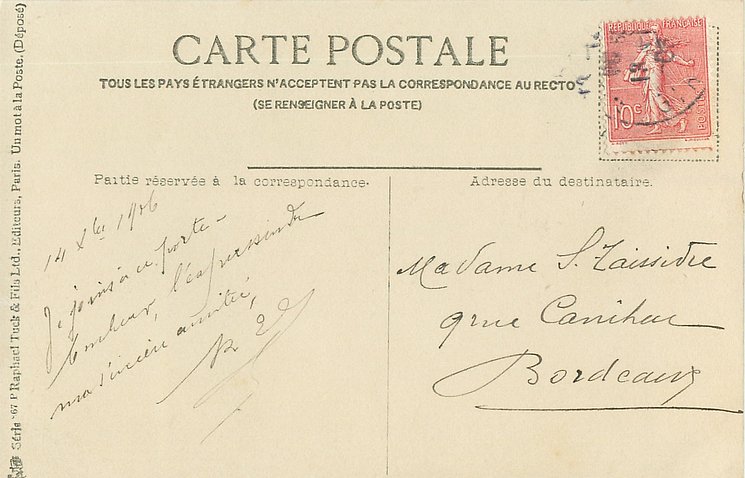 CARTE POSTALE
TOUS LES PAYS ÉTRANGERS N'ACCEPTENT PAS LA CORRESPONDANCE AU RECTO
(SE RENSEIGNER À LA POSTE)
REPUBLIQUE FRANÇAISE
10c
POSTES
Partie réservée à la correspondance.
14 Xbre 1906
Je joins à ce porte-
bonheur, l'expression de
ma sincère amitié,
Adresse du destinataire.
Madame S. Taissidre
9 rue Canihac
Bordeaux
Série 67 P Raphael Tuck & Fils Ltd., Editeurs, Paris. Un mot à la Poste. (Déposé)